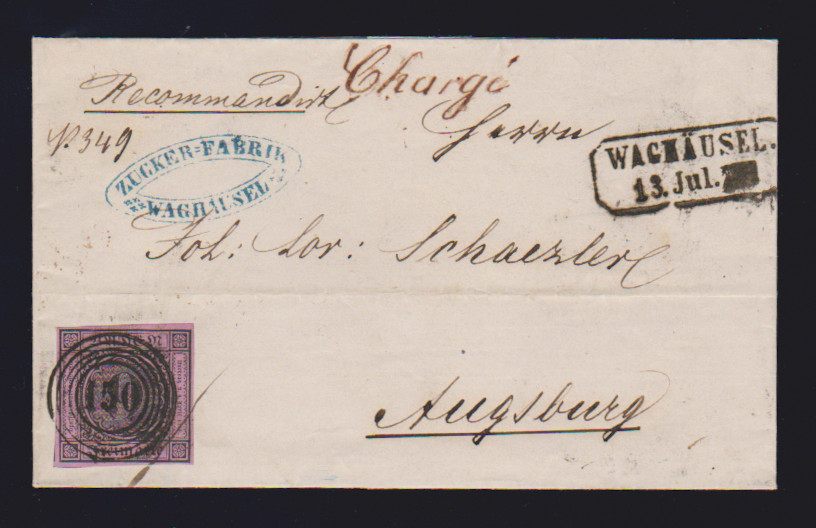 Chargé
Recommandirt
No. 349
Herrn
ZUCKER=FABRIK
WAGHÄUSEL
WAGHÄUSEL.
13. Jul.
Joh: Lor: Schaezler
150
Augsburg